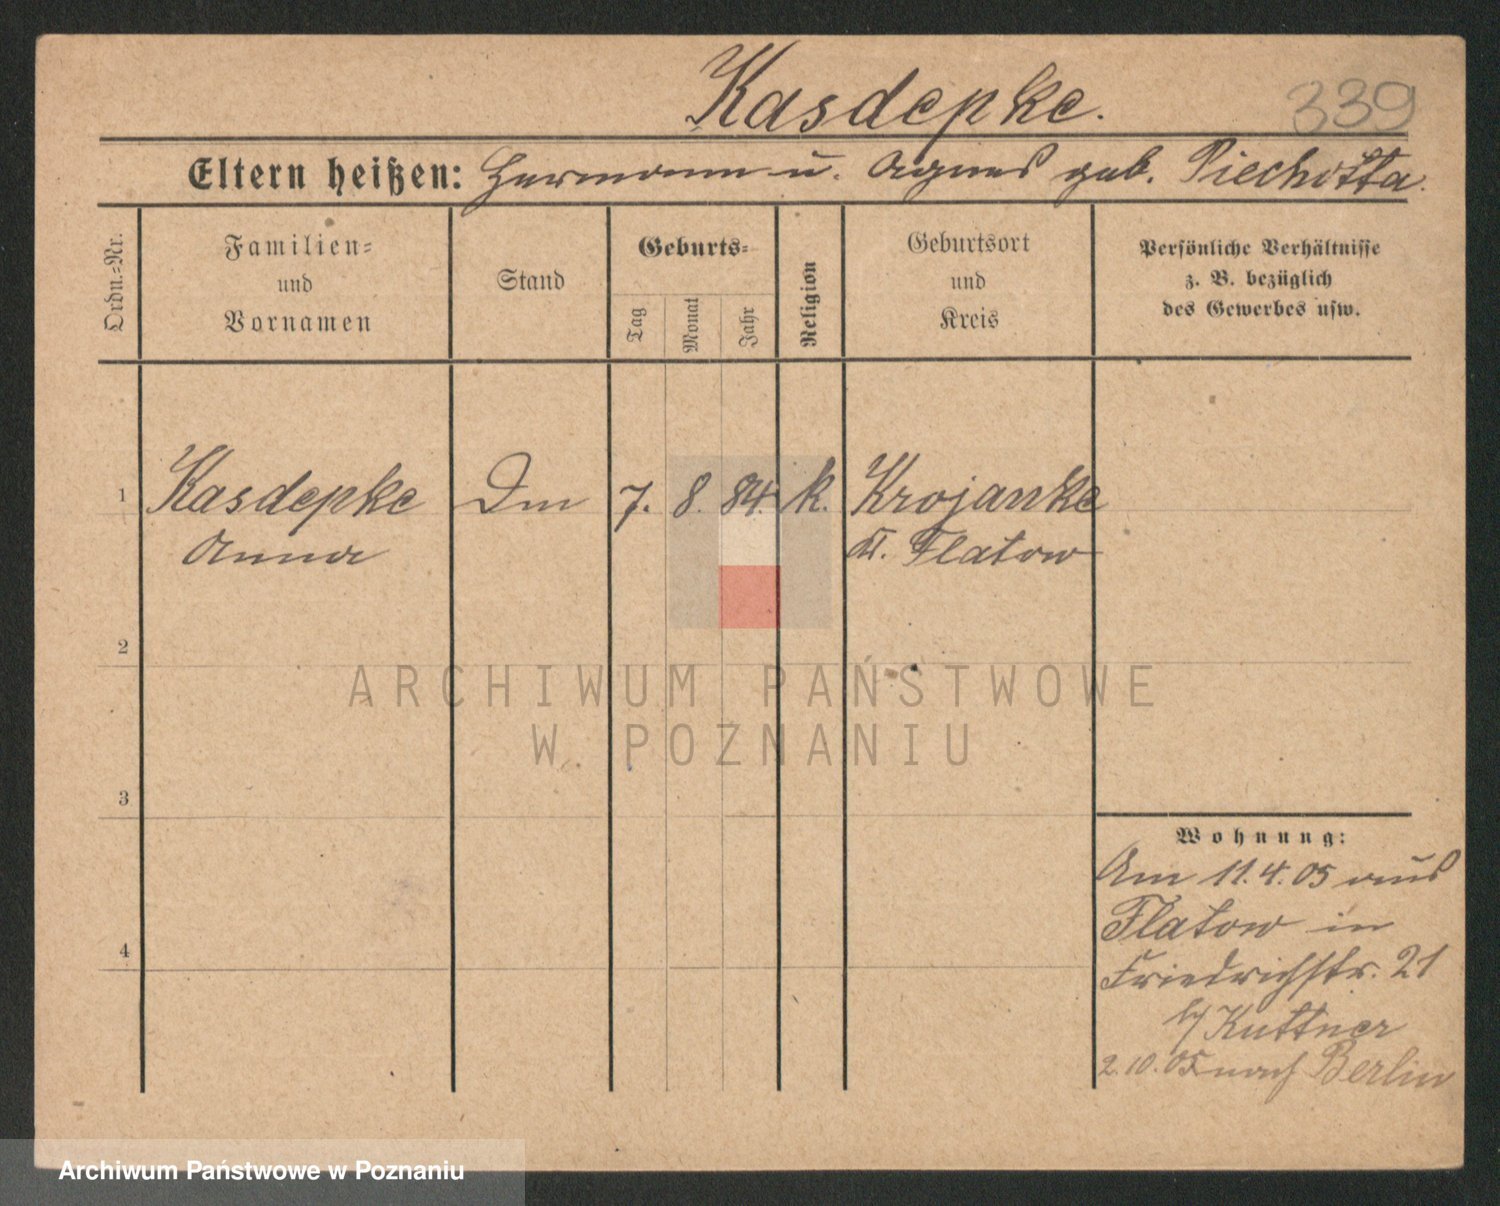 Kasdepke.
339
Eltern heißen: Hermann u. Agnes geb. Piechotta.
Ordn.=Nr.
Familien=
und
Vornamen
Stand
Geburts=
Tag
Monat
Jahr
Religion
Geburtsort
und
Kreis
Persönliche Verhältnisse
z. B. bezüglich
des Gewerbes usw.
1 Kasdepke Dm 7. 8. 84. k. Krojanke
Anna Kr. Flatow
2
3
4
Wohnung:
Am 11.4.05 aus
Flatow in
Friedrichstr. 21
b/ Kuttner
2.10.05 nach Berlin
ARCHIWUM PAŃSTWOWE
W POZNANIU
Archiwum Państwowe w Poznaniu